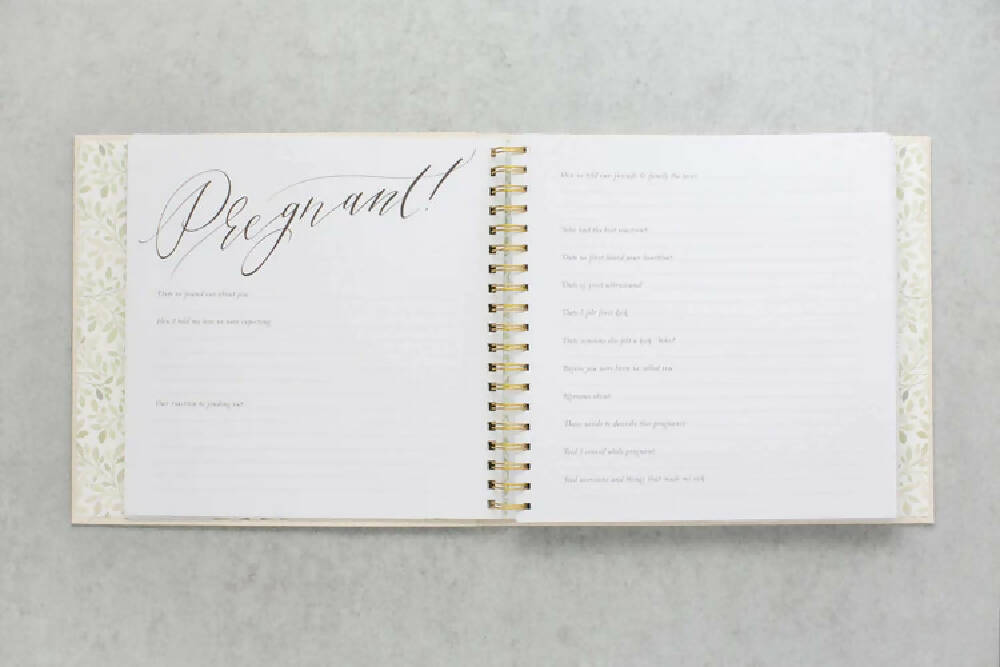 Pregnant!
Date we found out about you:
How I told my love we were expecting:
Our reaction to finding out:
How we told our friends & family the news:
Who had the best reaction?
Date we first heard your heartbeat:
Date of first ultrasound:
Date I felt first kick:
Date someone else felt a kick / who?
Before you were born we called you:
Nervous about:
Three words to describe this pregnancy:
Food I craved while pregnant:
Food aversions and things that made me sick: